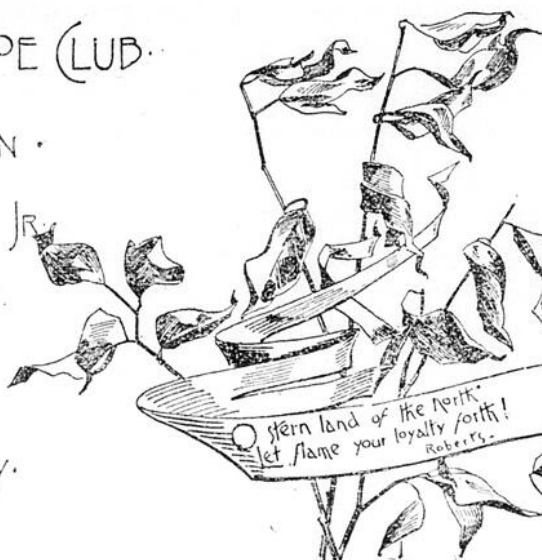 PE CLUB.
N.
JR.
O stern land of the North.
let flame your loyalty forth!
Roberts.
Y.